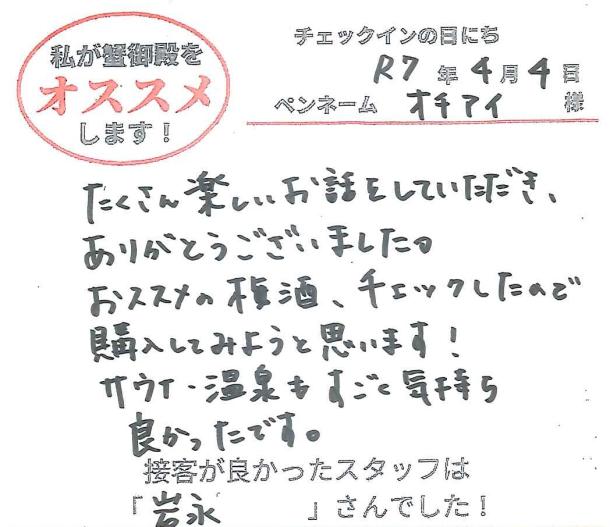 私が蟹御殿を
オススメ
します！
チェックインの日にち
R7 年 4 月 4 日
ペンネーム オチアイ 様
たくさん楽しいお話をしていただき、
ありがとうございました。
おススメの槙酒、チェックしたので
購入してみようと思います！
サウナ・温泉もすごく気持ち
良かったです。
接客が良かったスタッフは
「岩永 」さんでした！